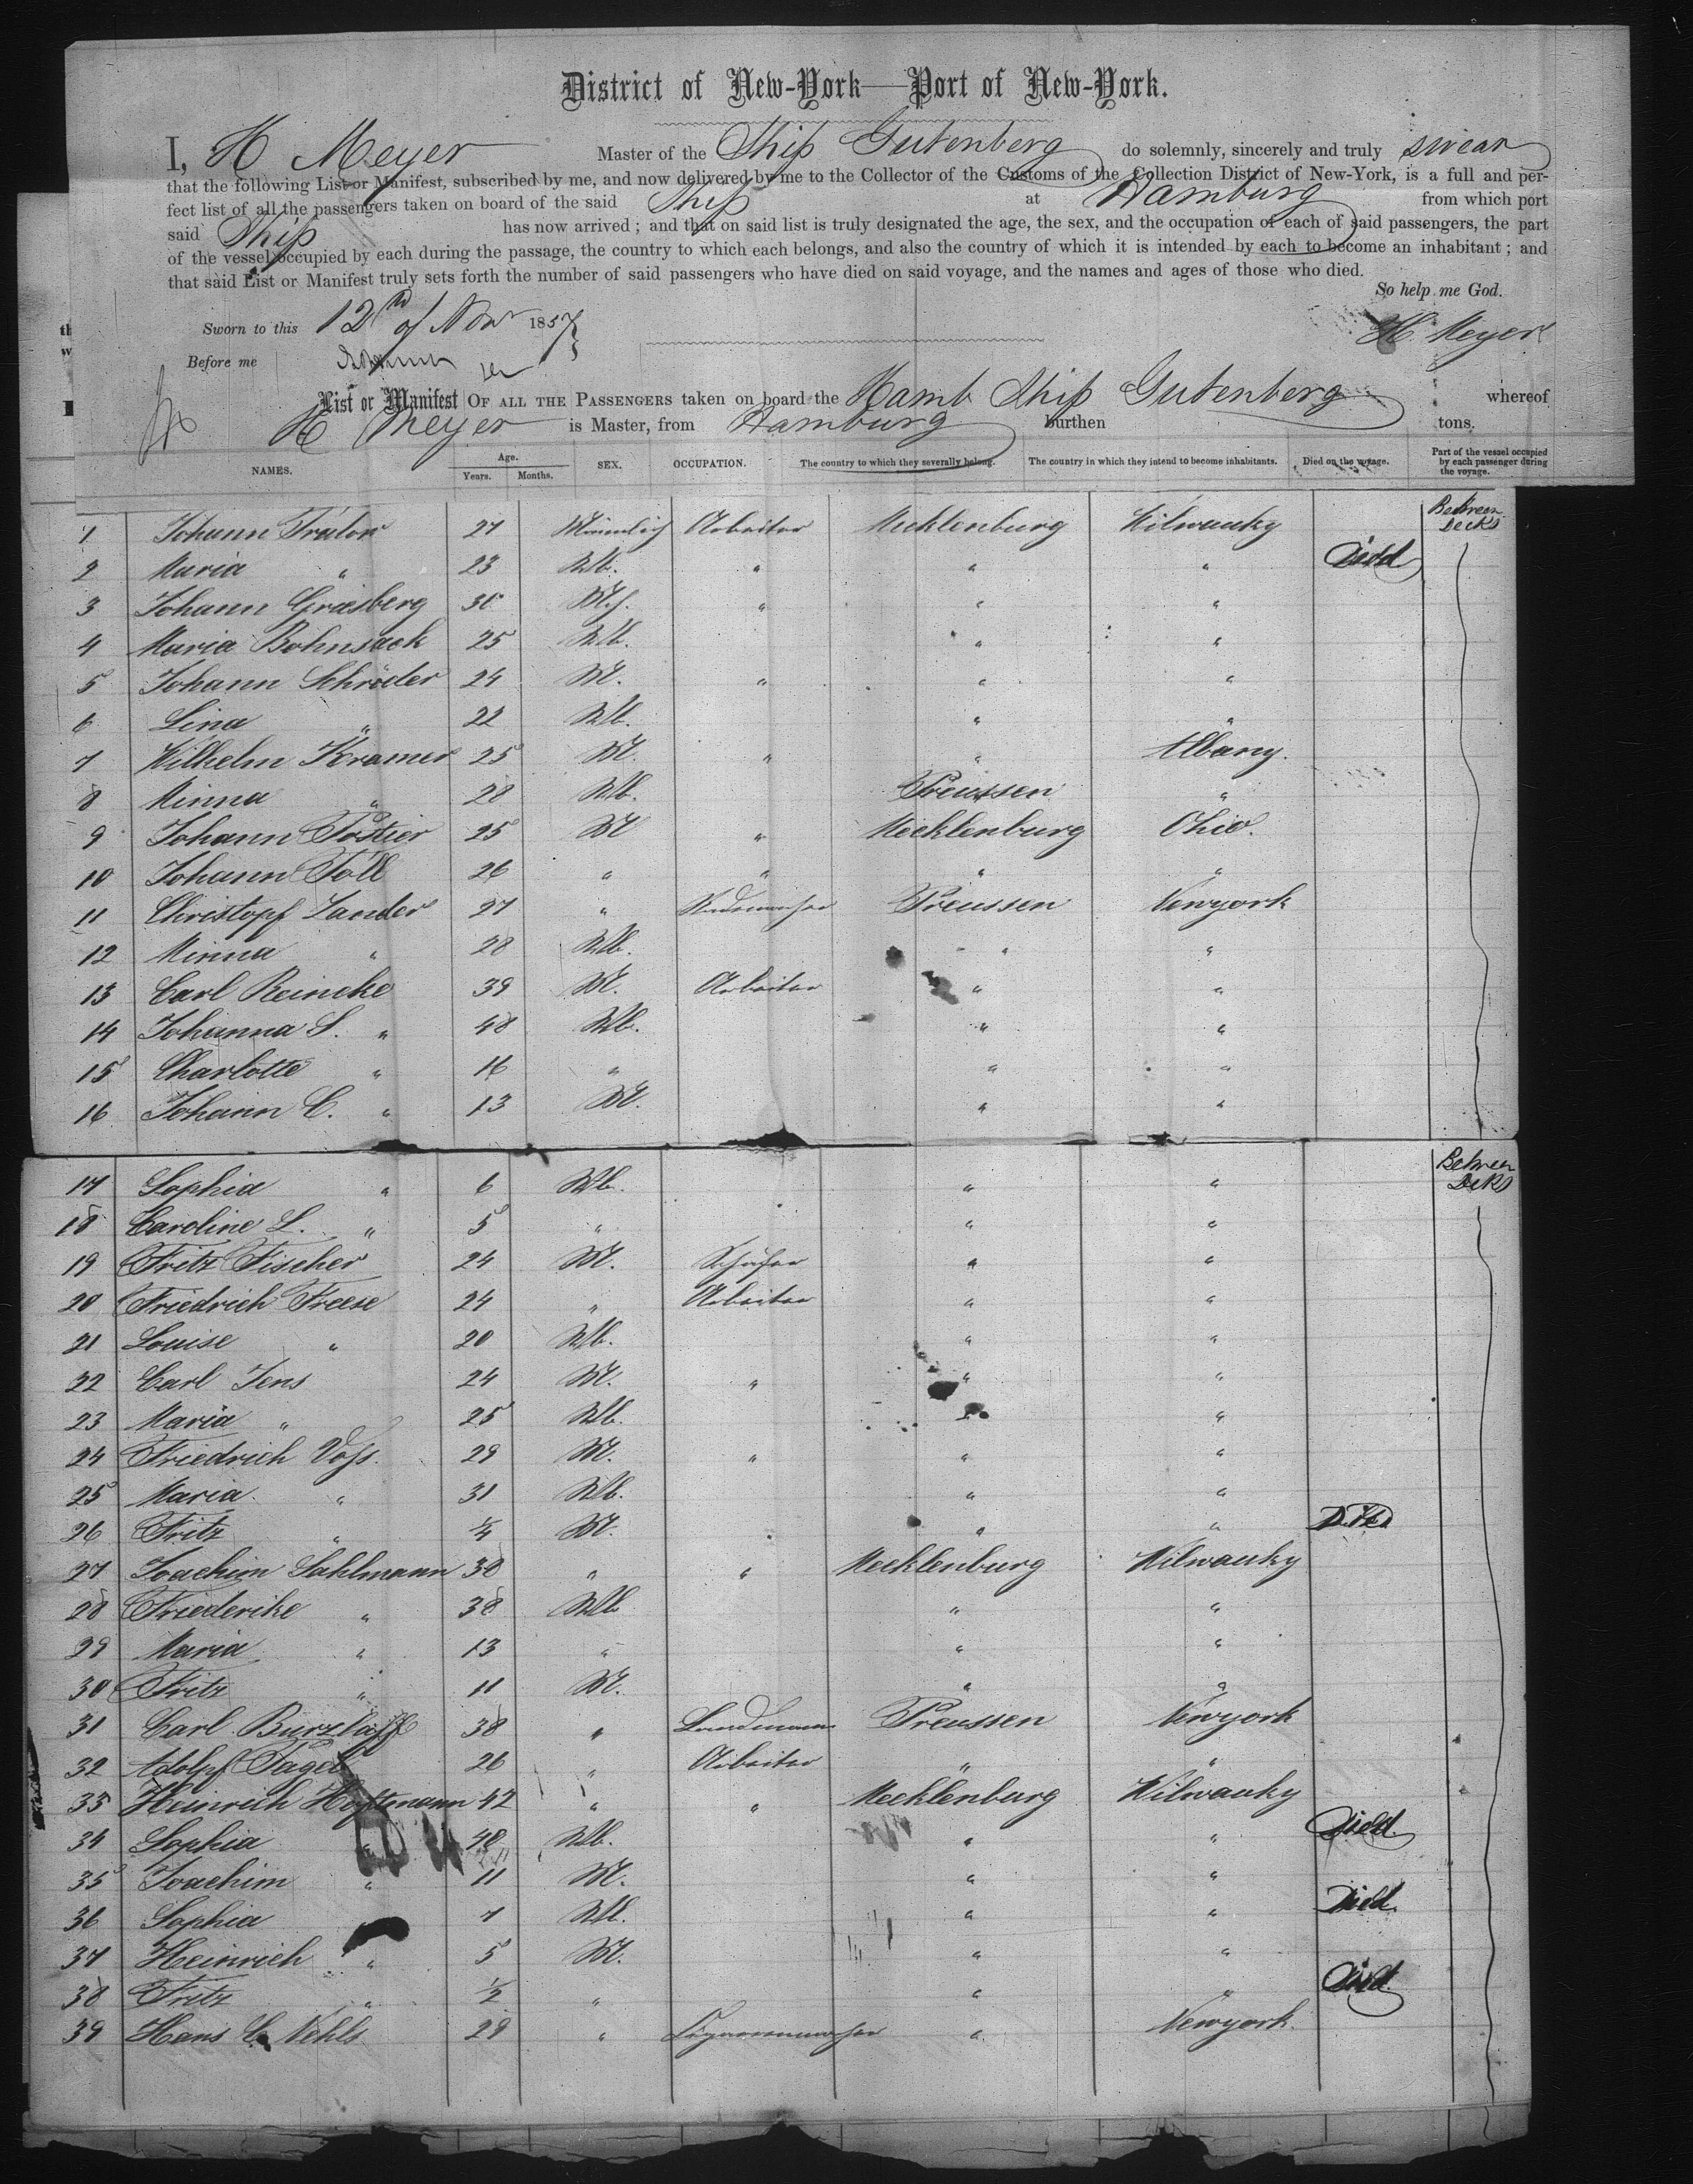 District of New-York—Port of New-York.
I, H Meyer Master of the Ship Gutenberg do solemnly, sincerely and truly swear
that the following List or Manifest, subscribed by me, and now delivered by me to the Collector of the Customs of the Collection District of New-York, is a full and per-
fect list of all the passengers taken on board of the said Ship at Hamburg from which port
said Ship has now arrived; and that on said list is truly designated the age, the sex, and the occupation of each of said passengers, the part
of the vessel occupied by each during the passage, the country to which each belongs, and also the country of which it is intended by each to become an inhabitant; and
that said List or Manifest truly sets forth the number of said passengers who have died on said voyage, and the names and ages of those who died.
So help me God.
Sworn to this 12th of Nov 1857 H Meyer
Before me
List or Manifest OF ALL THE PASSENGERS taken on board the Hamb Ship Gutenberg whereof
H Meyer is Master, from Hamburg burthen tons.
NAMES. Age. Years. Months. SEX. OCCUPATION. The country to which they severally belong. The country in which they intend to become inhabitants. Died on the voyage. Part of the vessel occupied by each passenger during the voyage.
1 Johann 27 Männlich Arbeiter Mecklenburg Milwauky Between Decks
2 Maria " 23 Wb. " " " Died
3 Johann Graesberg 30 M. " " "
4 Maria Bohnsack 25 Wb. " "
5 Johann Schröder 24 M. " " "
6 Lina " 22 Wb. " "
7 Wilhelm Kramer 25 M. " " Albany.
8 Minna " 28 Wb. Preussen "
9 Johann Postier 25 M " Mecklenburg Ohio.
10 Johann Töll 26 " " " "
11 Christopf Zander 27 " Preussen Newyork
12 Minna " 28 Wb. " "
13 Carl Reincke 39 M. Arbeiter " "
14 Johanna S. " 48 Wb. " "
15 Charlotte " 16 " " "
16 Johann C. " 13 M. " "
17 Sophia " 6 Wb. " " Between Decks
18 Caroline L. " 5 " " "
19 Fritz Fischer 24 M. Schäfer " "
20 Friedrich Freese 24 " Arbeiter " "
21 Louise " 20 Wb. " "
22 Carl Jens 24 M. " " "
23 Maria " 25 Wb. " "
24 Friedrich Voss. 29 M. " " "
25 Maria " 31 Wb. " "
26 Fritz " 1/4 M. " " Died
27 Joachim Sahlmann 30 " " Mecklenburg Milwauky
28 Friederike " 38 Wb " "
29 Maria " 13 " " "
30 Fritz " 11 M. " "
31 Carl Burzlaff 38 " Landmann Preussen Newyork
32 Adolpf Pagel 26 " Arbeiter " "
33 Heinrich 42 " " Mecklenburg Milwauky
34 Sophia " 40 Wb. " " Died.
35 Joachim " 11 M. " "
36 Sophia 7 Wb. " " Died.
37 Heinrich " 5 M. " "
38 Fritz " 1/2 " " " Died.
39 Hans C. Vehls 29 " Cigarrenmacher " Newyork.